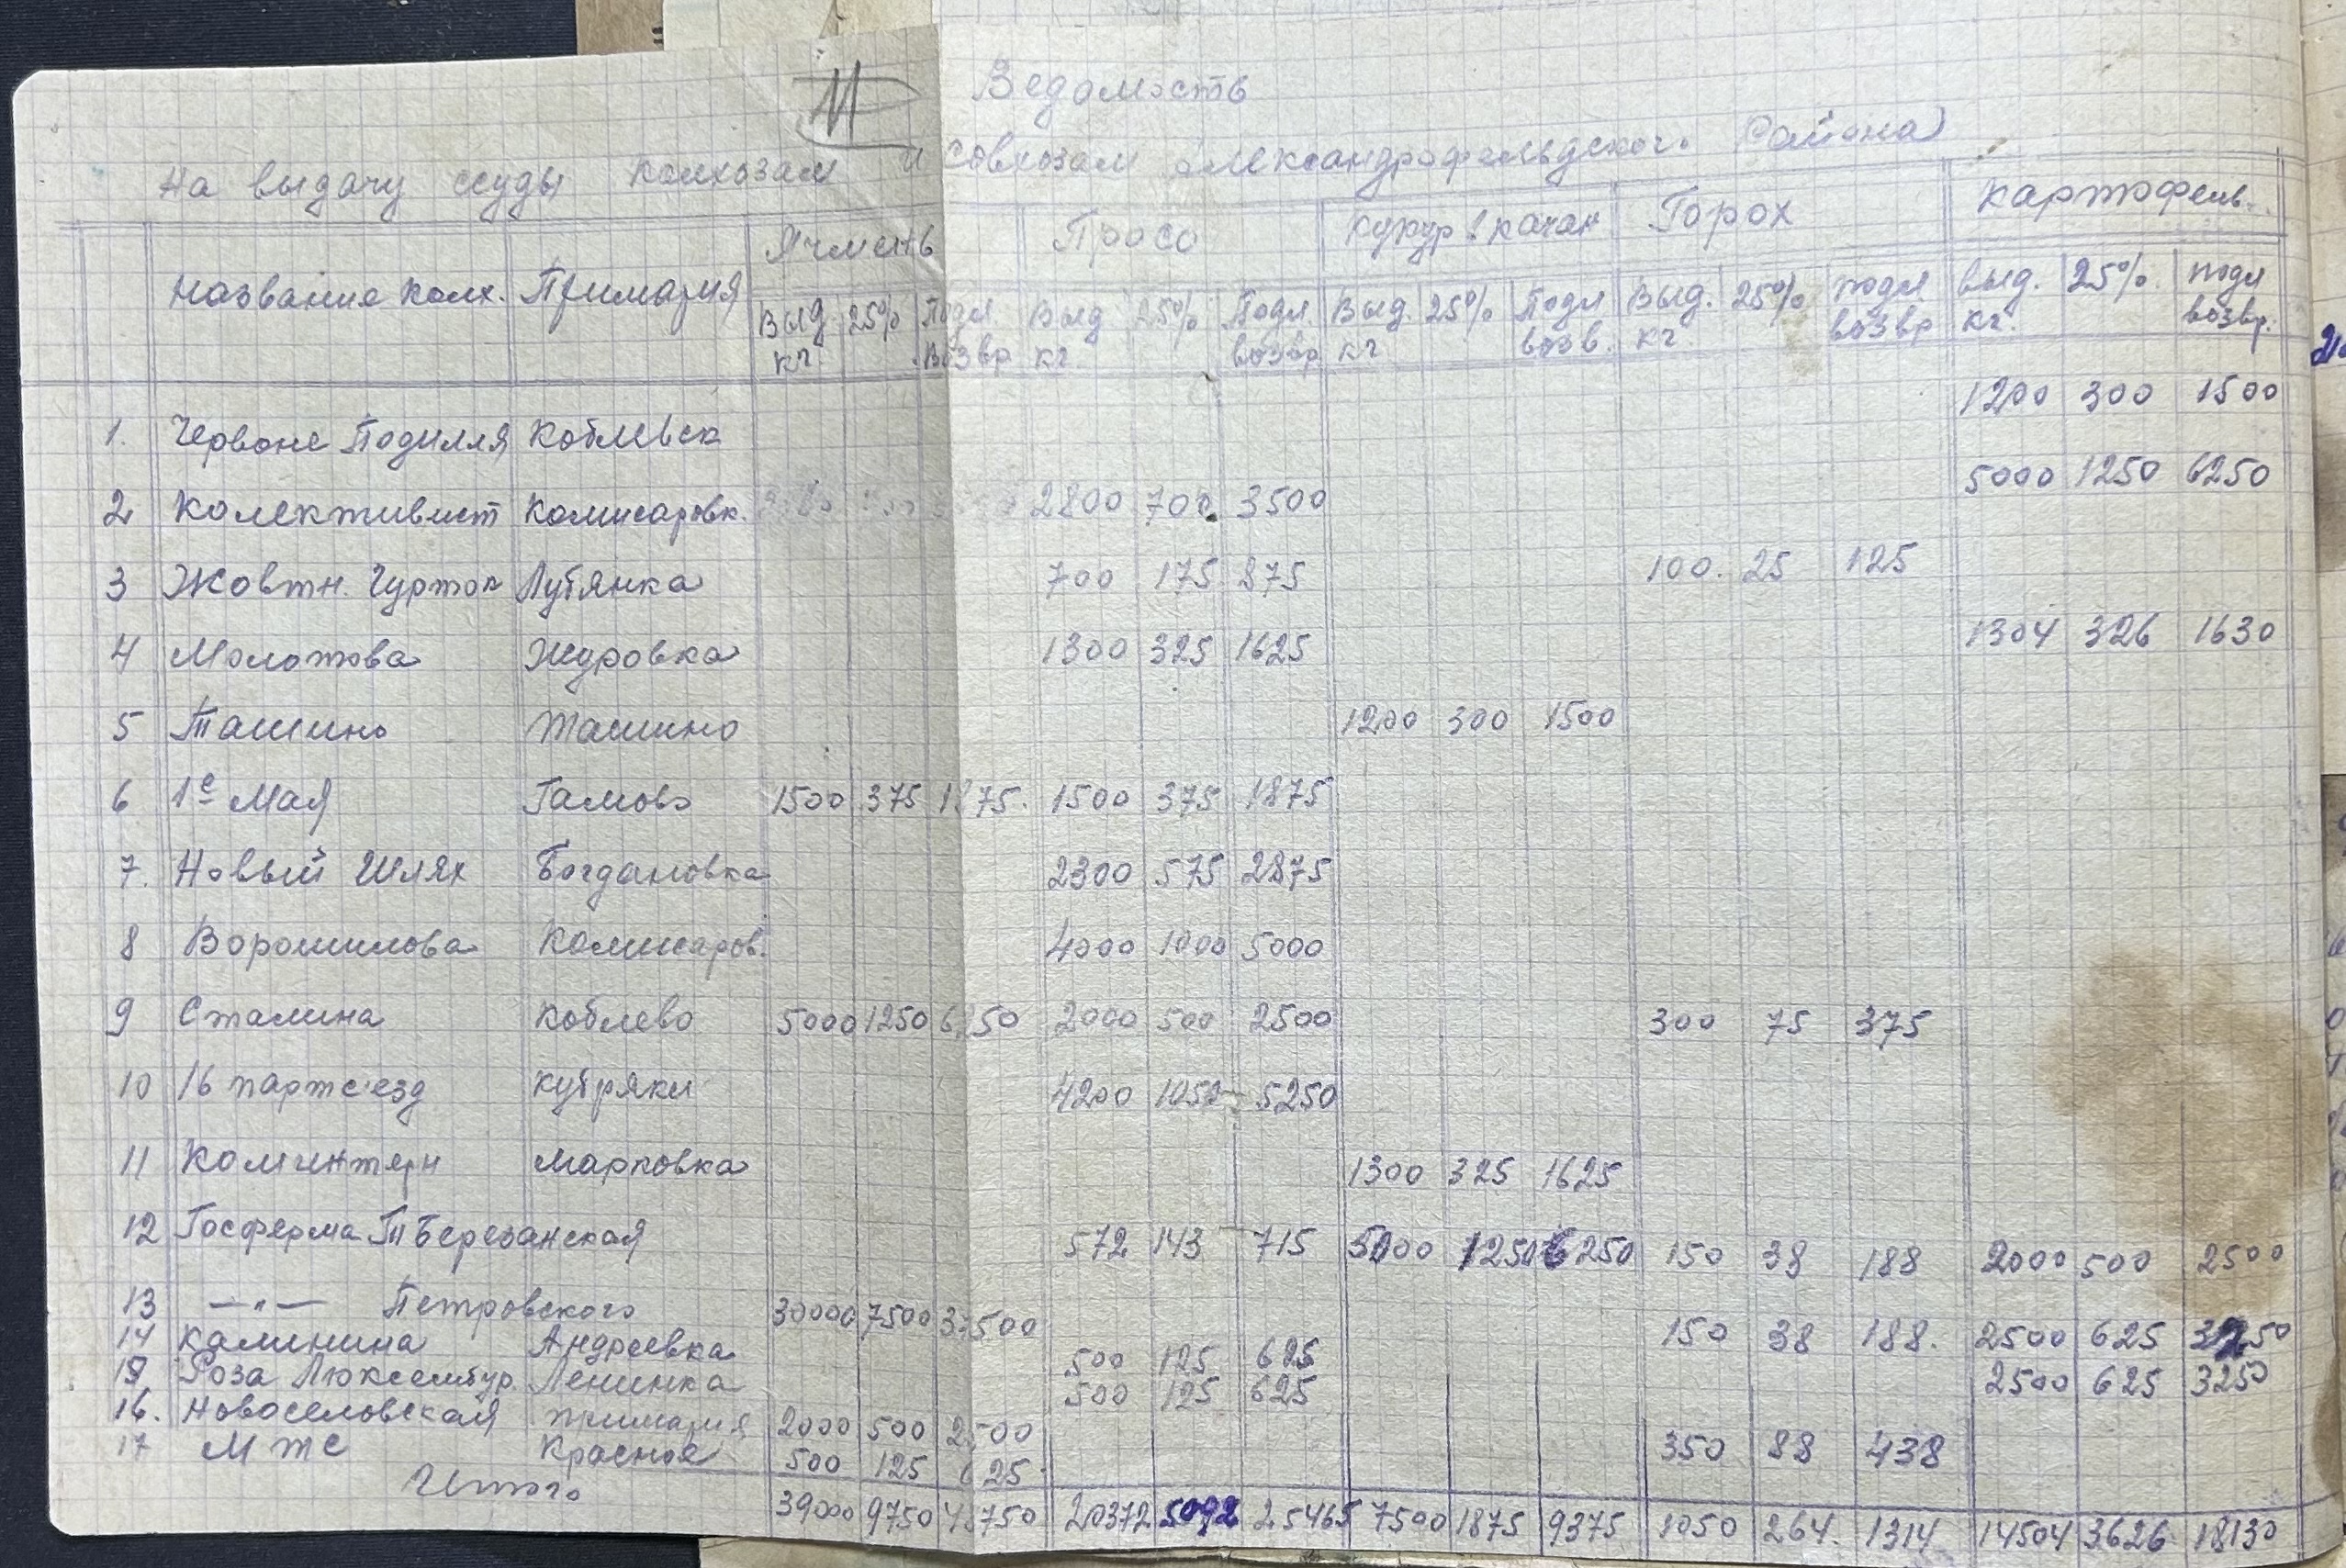 Ведомость
На выдачу ссуды колхозам и совхозам Александрофельдского района
Ячмень Просо Кукур в качан Горох Картофель
Название колх. Примария Выд кг. 25% Подл. возвр Выд кг. 25% Подл. возвр Выд. кг 25% Подл возв. Выд. кг. 25% подл возвр Выд. кг. 25% подл возвр.
1. Червоне Подилля Коблевск 1200 300 1500
2 Колективист Комисаровк. 2800 700 3500 5000 1250 6250
3 Жовтн. Гурток Лубянка 700 175 875 100. 25 125
4 Молотова Журовка 1300 325 1625 1304 326 1630
5 Ташино Ташино 1200 300 1500
6 1е Мая Гамово 1500 375 1875 1500 375 1875
7. Новый Шлях Богдановка 2300 575 2875
8 Ворошилова Комисаров. 4000 1000 5000
9 Сталина Коблево 5000 1250 6250 2000 500 2500 300 75 375
10 16 партсезд Кубряки 4200 1050 5250
11 Коминтерн Марковка 1300 325 1625
12 Госферма Т Березанская 572 143 715 5000 1250 6250 150 38 188 2000 500 2500
13 —"— Петровского 30000 7500 37500 150 38 188. 2500 625 3250
14 Калинина Андреевка 500 125 625 2500 625 3250
15 Роза Люксембур. Ленинка 500 125 625
16. Новоселовская примария 2000 500 2500
17 МТС Красное 500 125 625 350 88 438
Итого 39000 9750 48750 20372 5092 25465 7500 1875 9375 1050 264. 1314 14504 3626 18130